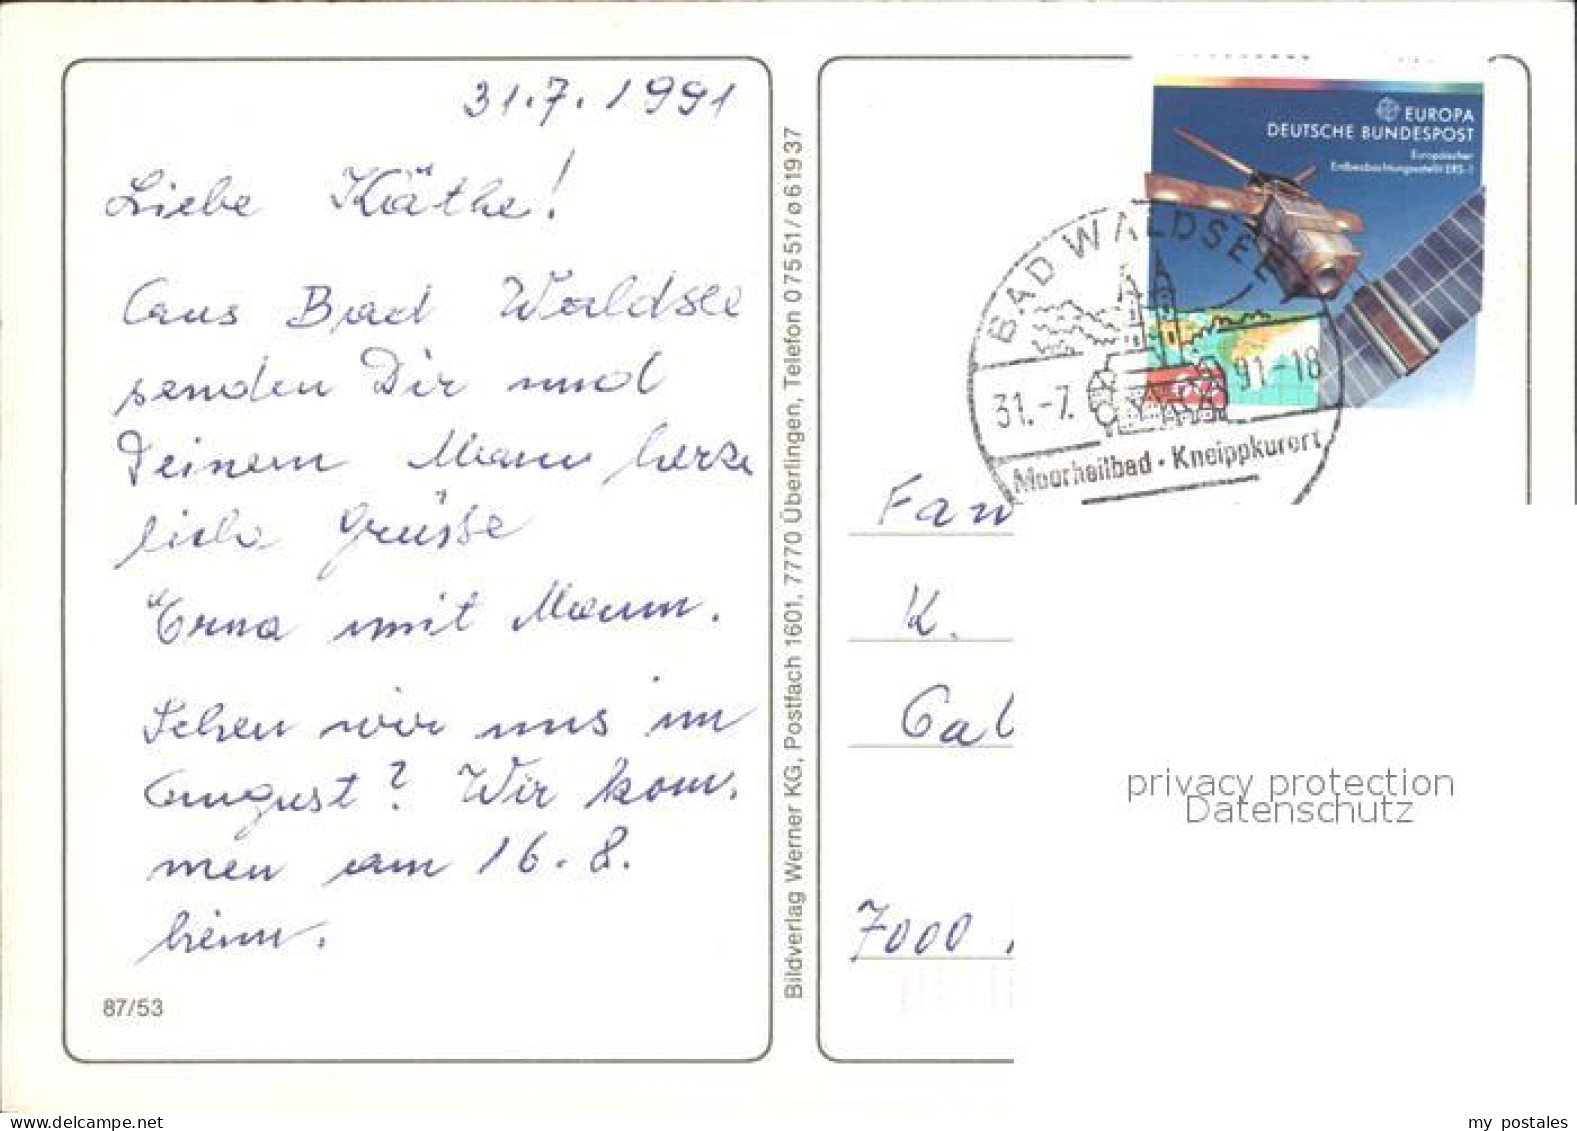 31.7.1991
Liebe Käthe!
Aus Bad Waldsee
senden Dir und
Deinem Mann herz
liche Grüsse
Erna mit Mann.
Sehen wir uns im
August? Wir kom,
men am 16.8.
heim.
87/53
Bildverlag Werner KG, Postfach 1601, 7770 Überlingen, Telefon 07551/ø61937
EUROPA
DEUTSCHE BUNDESPOST
Europäischer
Erdbeobachtungssatellit ERS-1
BAD WALDSEE
31.-7. 91-18
Moorheilbad · Kneippkurort
Fam
K.
Gal
7000
privacy protection
Datenschutz
my postales